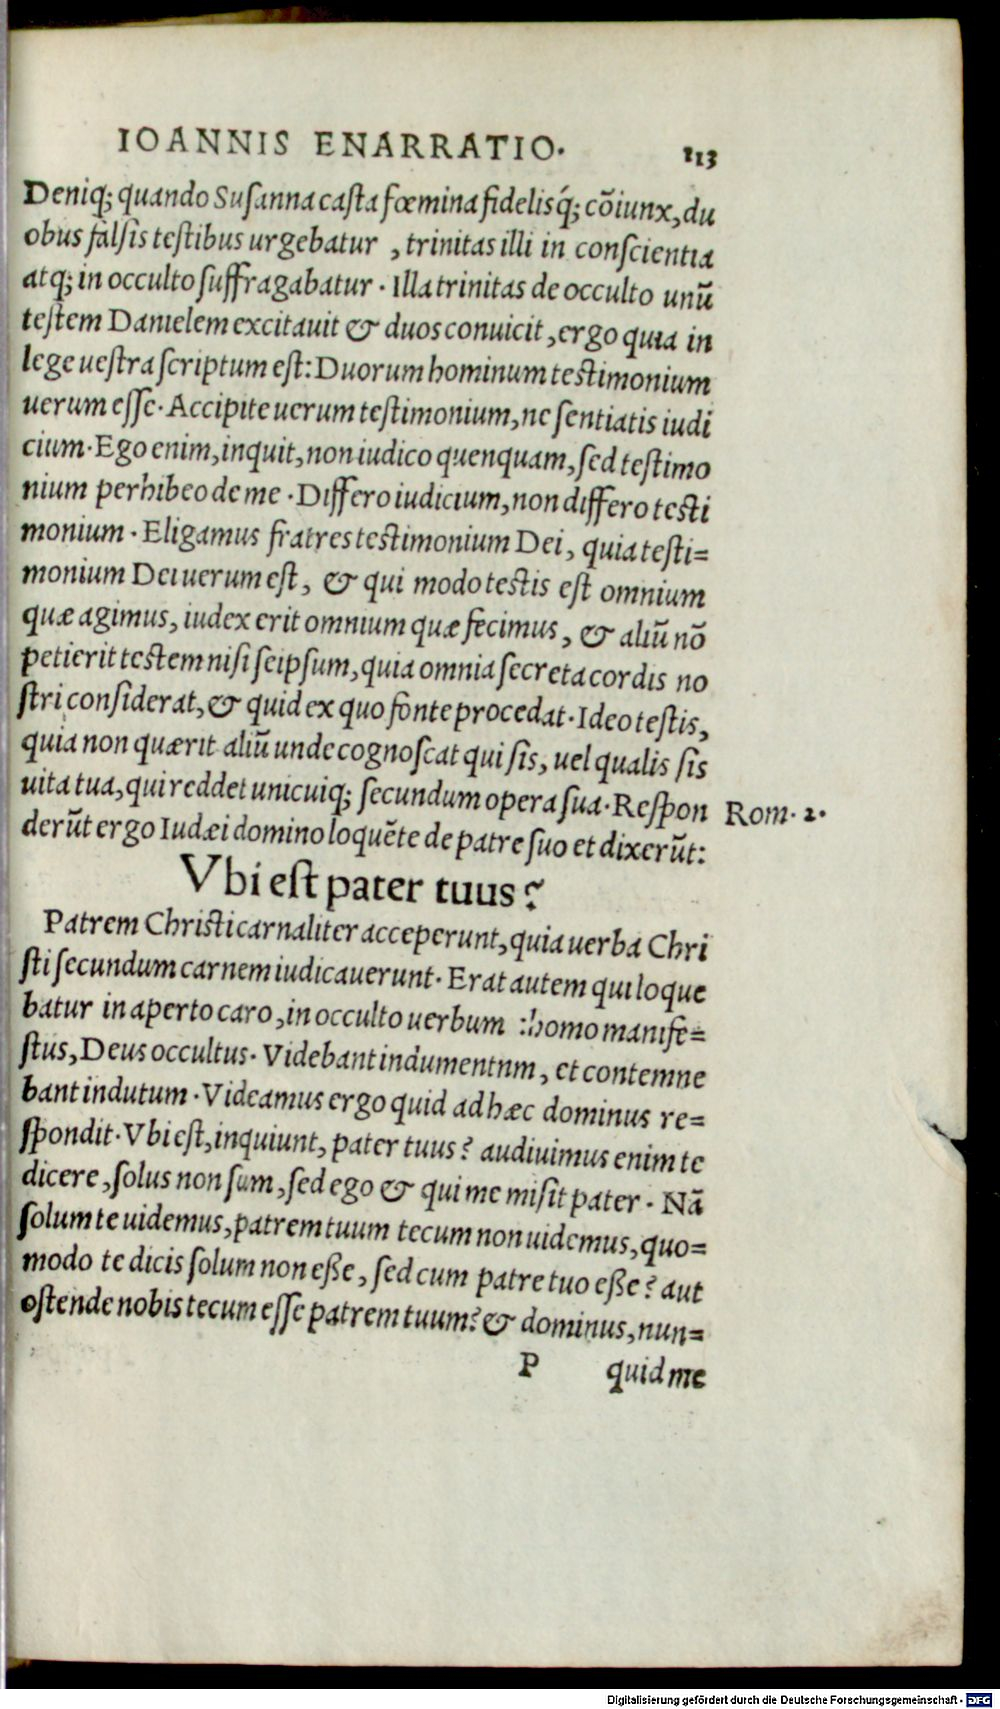 IOANNIS ENARRATIO. 113
Deniq; quando Susanna casta fœmina fidelisq́; cōiunx, du
obus falsis testibus urgebatur , trinitas illi in conscientia
atq; in occulto suffragabatur . Illa trinitas de occulto unū
testem Danielem excitauit & duos conuicit , ergo quia in
lege uestra scriptum est: Duorum hominum testimonium
uerum esse. Accipite uerum testimonium, ne sentiatis iudi
cium. Ego enim, inquit, non iudico quenquam, sed testimo
nium perhibeo de me . Differo iudicium, non differo testi
monium . Eligamus fratres testimonium Dei , quia testi=
monium Dei uerum est , & qui modo testis est omnium
quæ agimus, iudex erit omnium quæ fecimus , & aliū nō
petierit testem nisi seipsum, quia omnia secreta cordis no
stri considerat, & quid ex quo fonte procedat . Ideo testis,
quia non quærit aliū unde cognoscat qui sis, uel qualis sis
uita tua, qui reddet unicuiq; secundum opera sua. Respon Rom. 2.
derūt ergo Iudæi domino loquēte de patre suo et dixerūt:
Vbi est pater tuus?
Patrem Christi carnaliter acceperunt, quia uerba Chri
sti secundum carnem iudicauerunt. Erat autem qui loque
batur in aperto caro, in occulto uerbum :homo manife=
stus, Deus occultus. Videbant indumentnm, et contemne
bant indutum . Videamus ergo quid ad hæc dominus re=
spondit. Vbi est, inquiunt, pater tuus? audiuimus enim te
dicere , solus non sum , sed ego & qui me misit pater . Nā
solum te uidemus, patrem tuum tecum non uidemus, quo=
modo te dicis solum non eße , sed cum patre tuo eße? aut
ostende nobis tecum esse patrem tuum? & dominus, nun=
P quid me
Digitalisierung gefördert durch die Deutsche Forschungsgemeinschaft - DFG